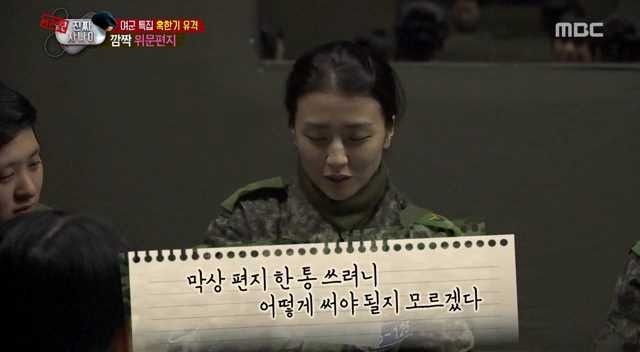 진짜
사나이
여군 특집 혹한기 유격
깜짝 위문편지
MBC
막상 편지 한 통 쓰려니
어떻게 써야 될지 모르겠다